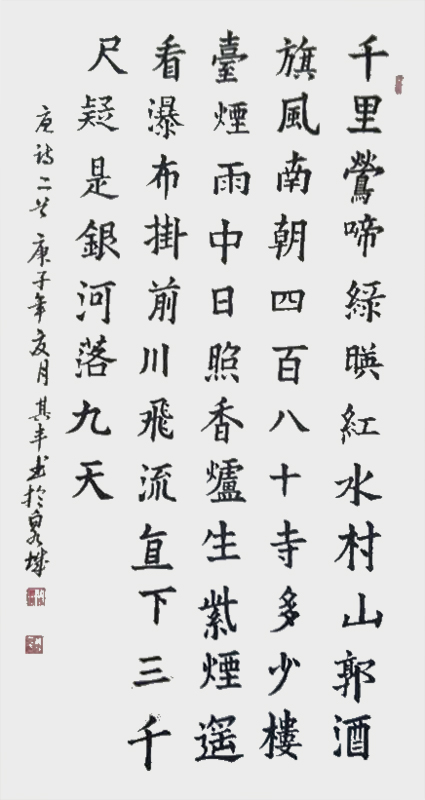 千里鶯啼綠暎紅水村山郭酒
旗風南朝四百八十寺多少樓
臺煙雨中日照香爐生紫煙遥
看瀑布掛前川飛流直下三千
尺疑是銀河落九天
唐詩二首庚子年夏月其丰书於泉城